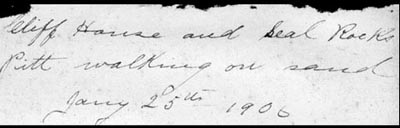 Cliff House and Seal Rocks
Pitt walking on sand
Jany 25th 1906